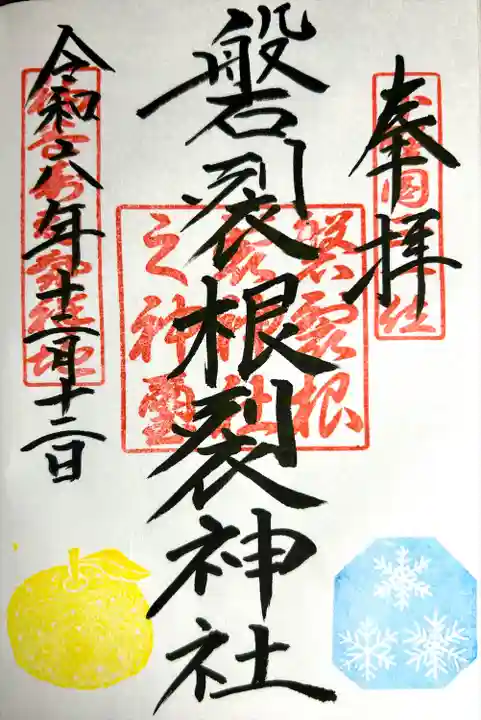 奉拝
磐裂根裂神社
磐裂根
裂神社
之神璽
令和六年十二月十二日